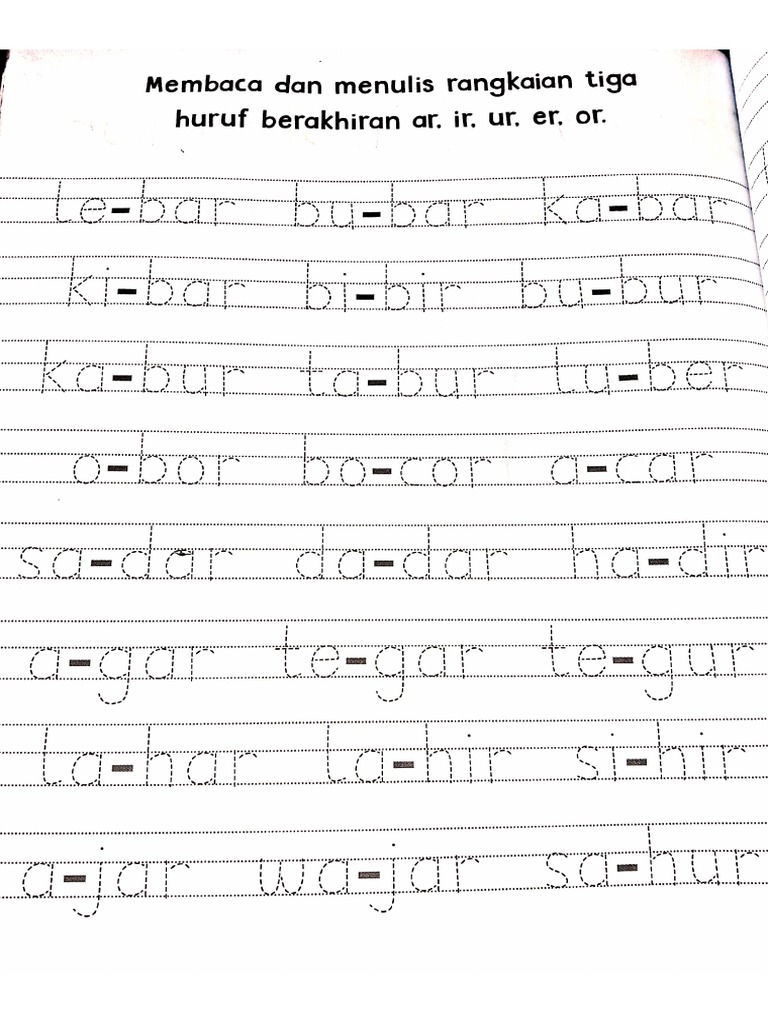 Membaca dan menulis rangkaian tiga
huruf berakhiran ar, ir, ur, er, or.
le-bar bu-bar ka-bar
ki-bar bi-bir bu-bur
ka-bur ta-bur tu-ber
o-bor bo-cor a-car
sa-dar da-dar ha-dir
a-gar te-gar te-gur
la-har la-hir si-hir
a-jar wa-jar sa-hur